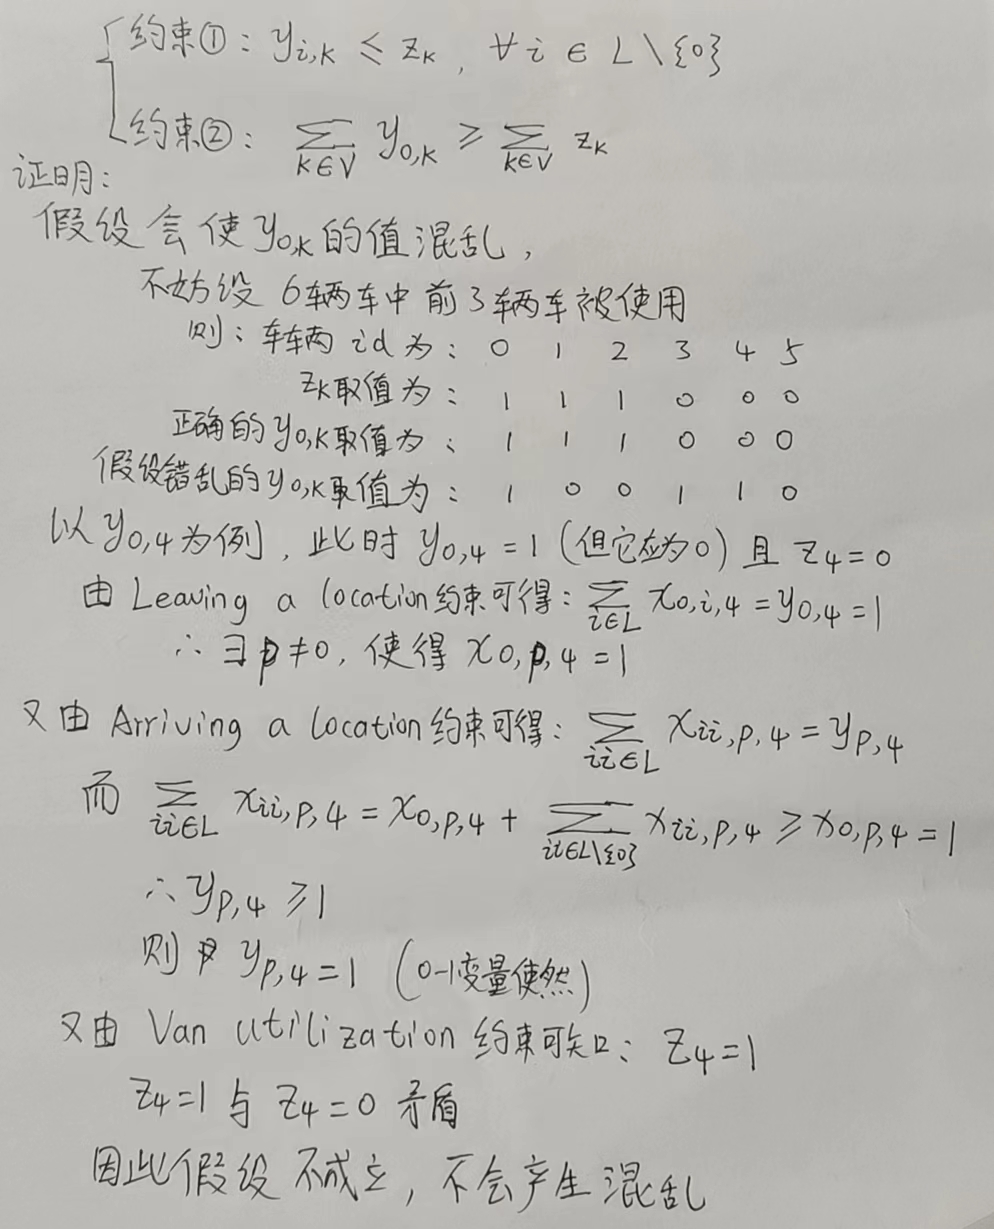 约束①: y_{i,k} ≤ z_k, ∀ i ∈ L \ {0}
约束②: ∑_{k∈V} y_{0,k} ≥ ∑_{k∈V} z_k
证明:
假设会使y_{0,k}的值混乱,
不妨设 6辆车中前3辆车被使用
则: 车辆 id 为: 0 1 2 3 4 5
z_k取值为: 1 1 1 0 0 0
正确的y_{0,k}取值为: 1 1 1 0 0 0
假设错乱的y_{0,k}取值为: 1 0 0 1 1 0
以y_{0,4}为例, 此时 y_{0,4} = 1 (但它应为0) 且 z_4 = 0
由 Leaving a location约束可得: ∑_{i∈L} x_{0,i,4} = y_{0,4} = 1
∴ ∃ p ≠ 0, 使得 x_{0,p,4} = 1
又由 Arriving a location约束可得: ∑_{ii∈L} x_{ii,p,4} = y_{p,4}
而 ∑_{ii∈L} x_{ii,p,4} = x_{0,p,4} + ∑_{ii∈L\{0}} x_{ii,p,4} ≥ x_{0,p,4} = 1
∴ y_{p,4} ≥ 1
则 y_{p,4} = 1 (0-1变量使然)
又由 Van utilization 约束可知: z_4 = 1
z_4 = 1 与 z_4 = 0 矛盾
因此假设不成立, 不会产生混乱